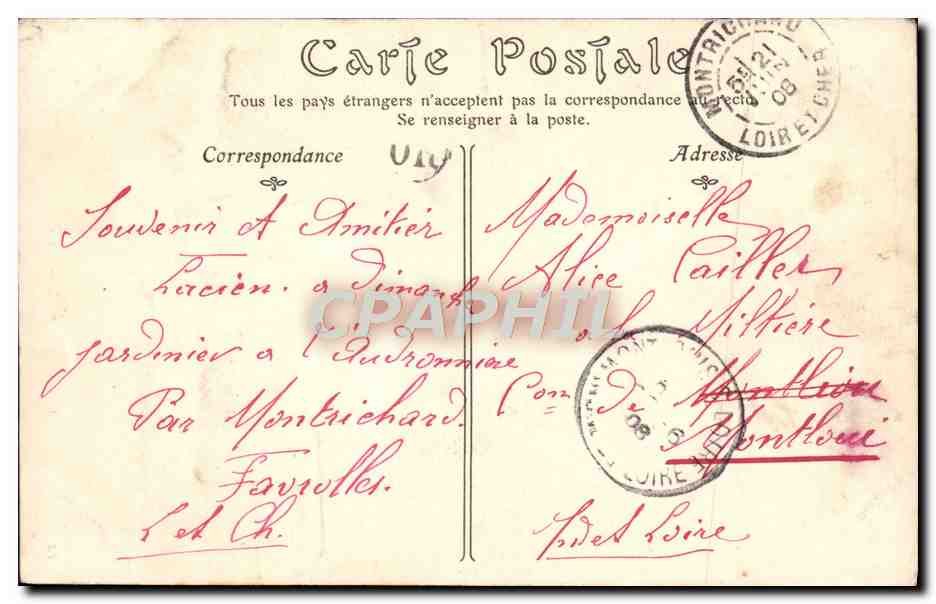 Carte Postale
Tous les pays étrangers n'acceptent pas la correspondance au recto
Se renseigner à la poste.
MONTRICHARD
21
08
LOIR ET CHER
Correspondance
Souvenir et Amitier
Lucien. a Dimanche
jardinier a l'Audronnière
Par Montrichard.
Faverolles.
L et Ch.
Adresse
Mademoiselle
Alice Cailler
a la Miltière
Com de Montliou
Montloui
Indet Loire
08
LOIRE
CPAPHIL